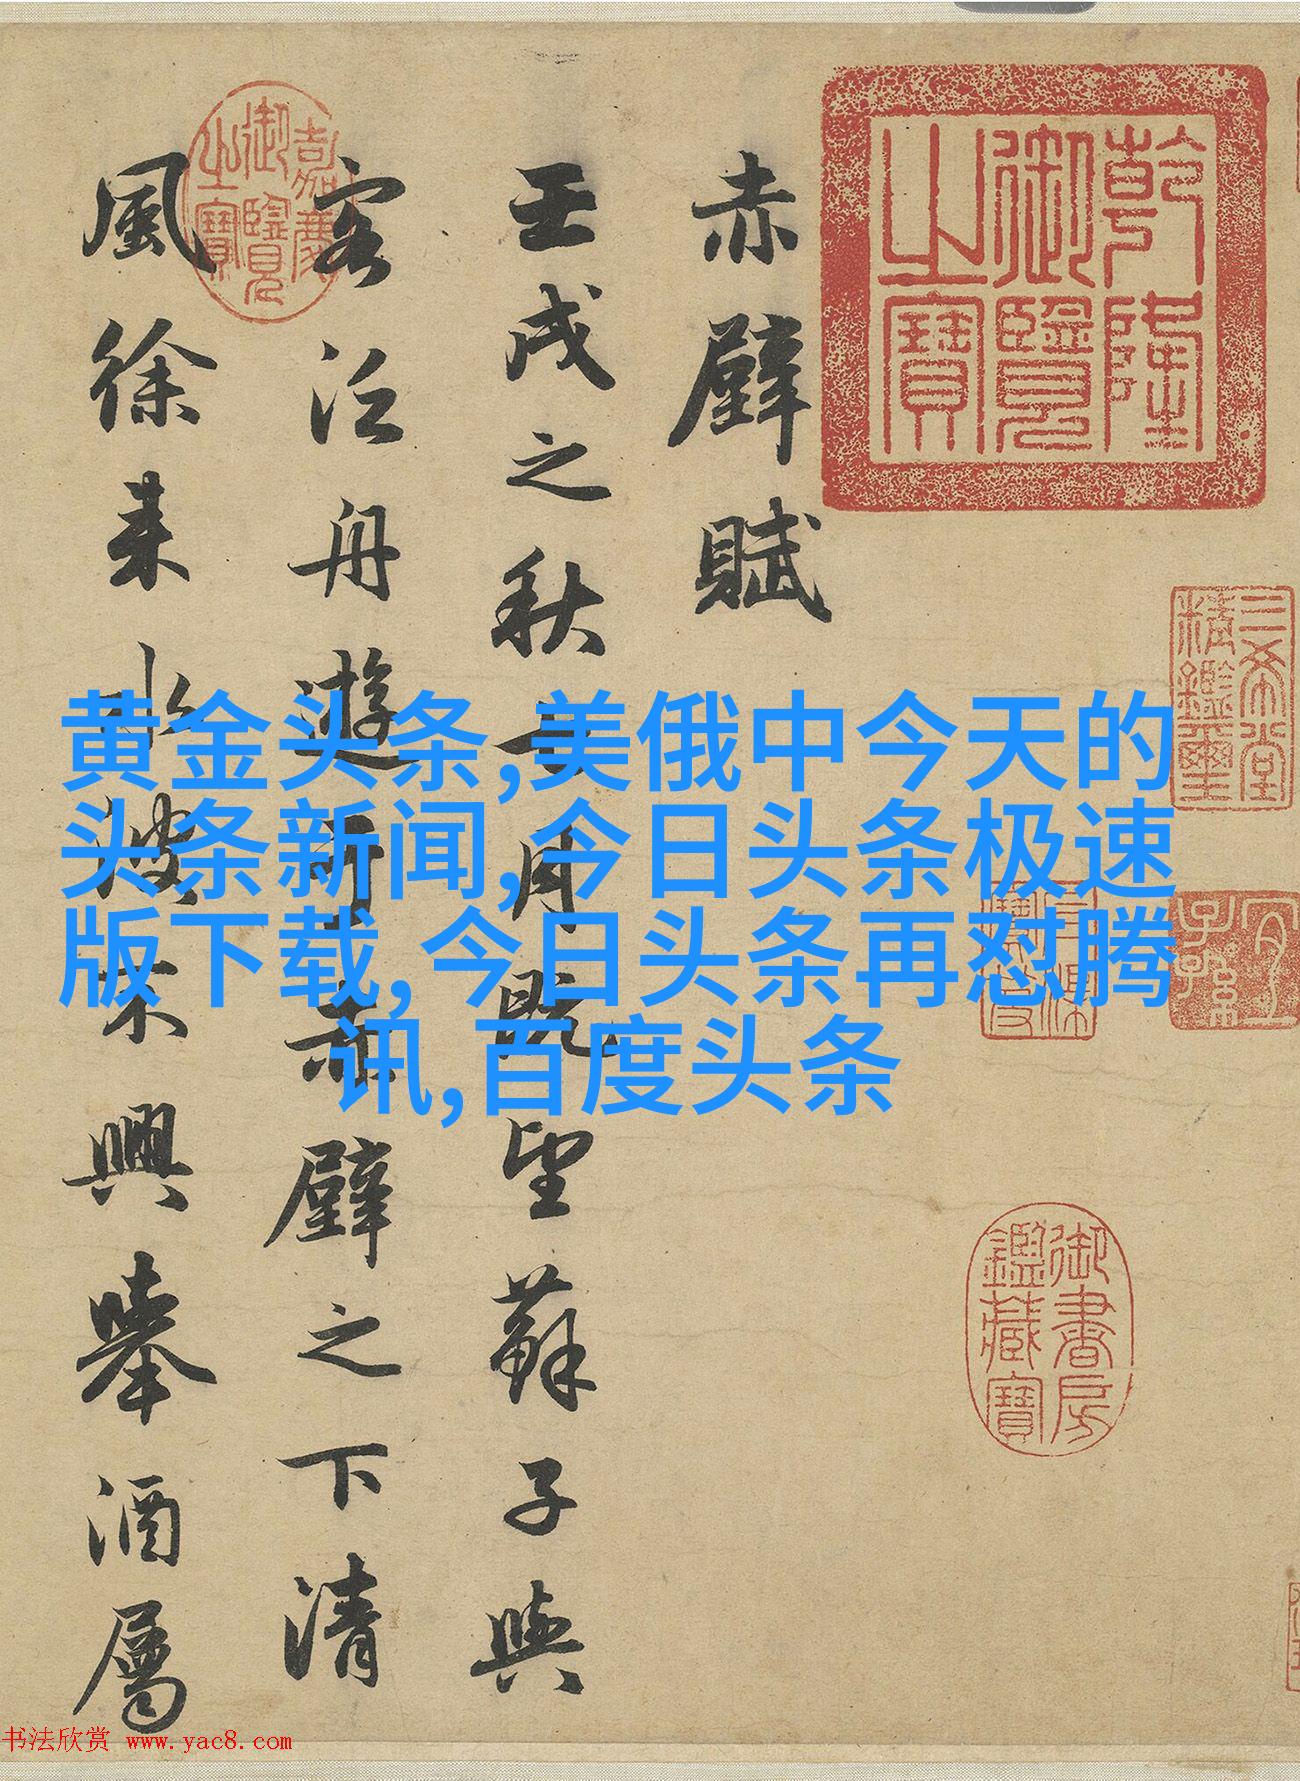 乾隆御覽之寶
三希堂精鑑璽
宜子孫
石渠寶笈
御書房鑑藏寶
赤壁賦
壬戌之秋七月既望蘇子與
客泛舟遊于赤壁之下清
風徐来水波不興舉酒屬
嘉慶御覽之寶
黄金头条,美俄中今天的
头条新闻,今日头条极速
版下载,今日头条再怼腾
讯,百度头条
书法欣赏 www.yac8.com